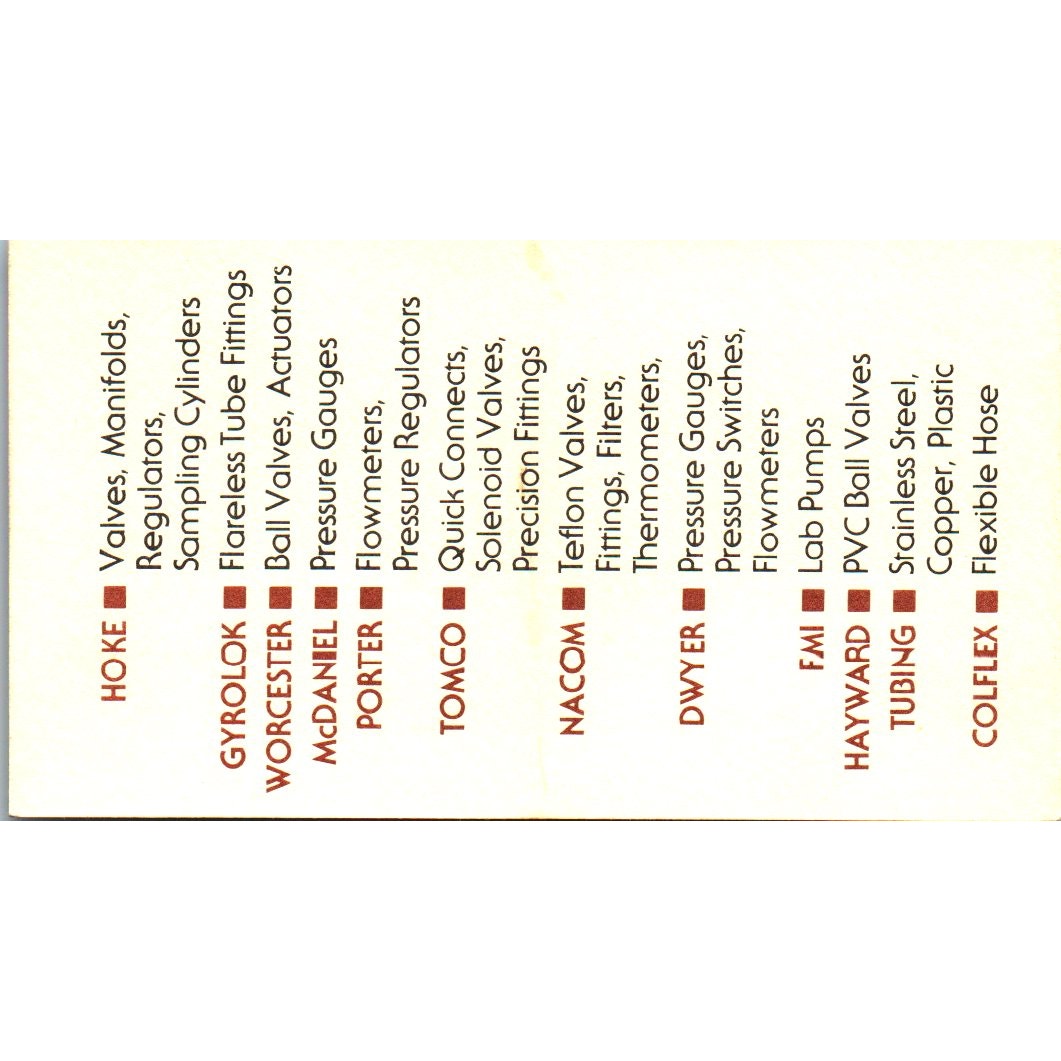 HOKE ■ Valves, Manifolds,
Regulators,
Sampling Cylinders
GYROLOK ■ Flareless Tube Fittings
WORCESTER ■ Ball Valves, Actuators
McDANIEL ■ Pressure Gauges
PORTER ■ Flowmeters,
Pressure Regulators
TOMCO ■ Quick Connects,
Solenoid Valves,
Precision Fittings
NACOM ■ Teflon Valves,
Fittings, Filters,
Thermometers,
DWYER ■ Pressure Gauges,
Pressure Switches,
Flowmeters
FMI ■ Lab Pumps
HAYWARD ■ PVC Ball Valves
TUBING ■ Stainless Steel,
Copper, Plastic
COLFLEX ■ Flexible Hose